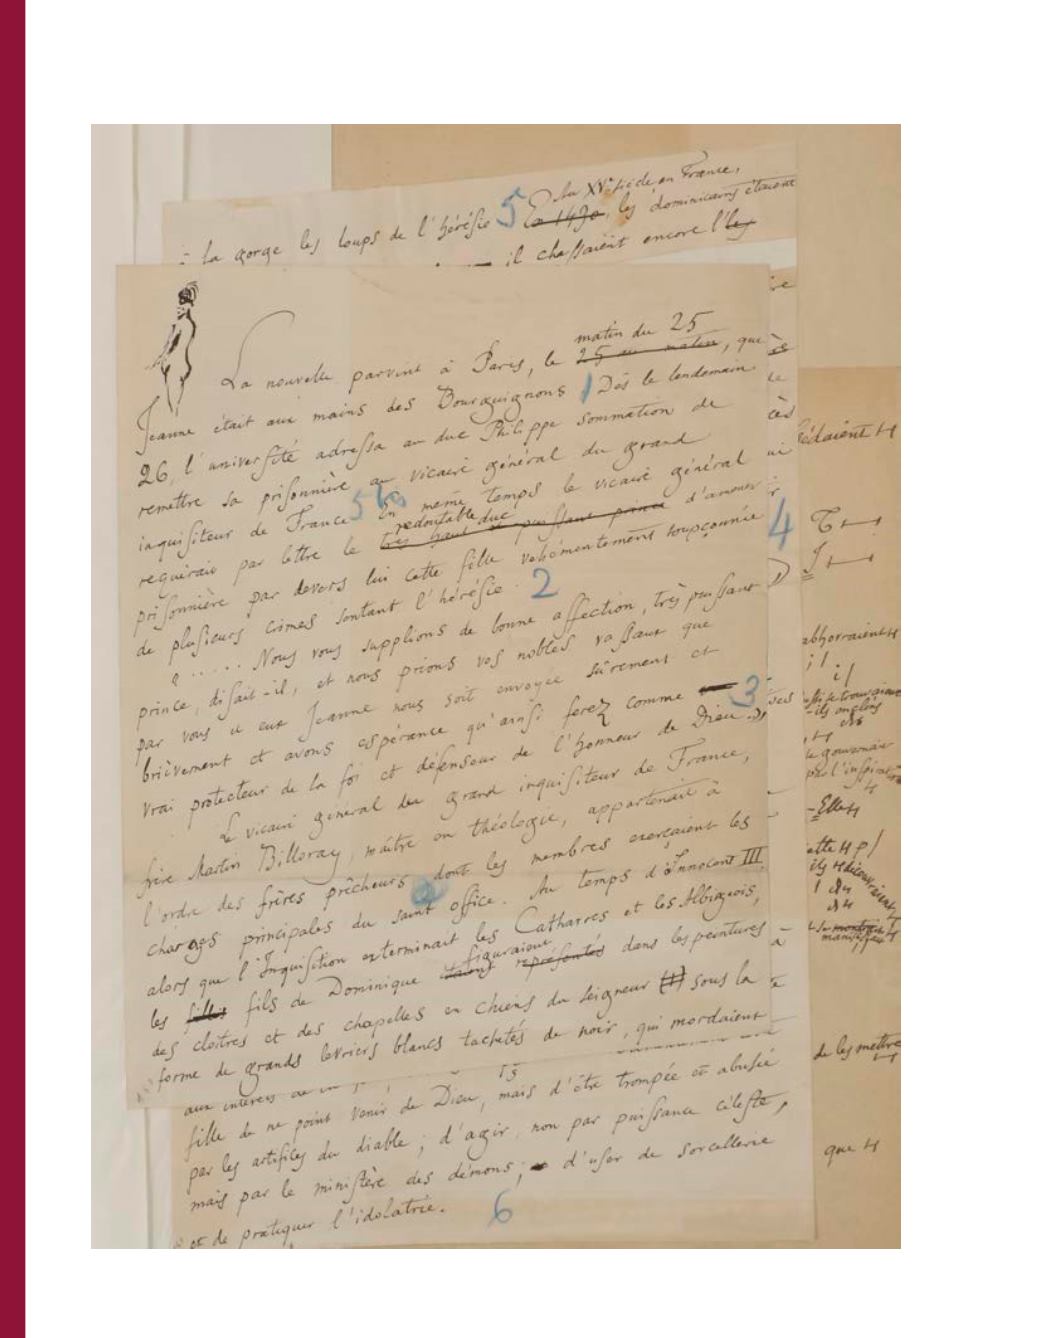 Au XVe siècle en France,
la gorge les loups de l'hérésie 5 En 1430, les dominicains étaient
il chassaient encore l'les
matin du 25
La nouvelle parvint à Paris, le 25 au matin, que
Jeanne était aux mains des Bourguignons 1 Dès le lendemain
26, l'université adressa au duc Philippe sommation de
remettre sa prisonnière au vicaire général du grand
inquisiteur de France 5 bis En même temps le vicaire général
redoutable duc
requérait par lettre le très haut et puissant prince d'amener
prisonnière par devers lui cette fille véhémentement soupçonnée
de plusieurs crimes sentant l'hérésie. 2
« .... Nous vous supplions de bonne affection, très puissant
prince, disait-il, et nous prions vos nobles vassaux que
par vous et eux Jeanne nous soit envoyée sûrement et
brièvement et avons espérance qu'ainsi ferez comme 3
vrai protecteur de la foi et défenseur de l'honneur de Dieu. »
Le vicaire général du grand inquisiteur de France,
frère Martin Billoray, maître en théologie, appartenait à
l'ordre des frères prêcheurs dont les membres exerçaient les
charges principales du saint office. Au temps d'Innocent III,
alors que l'Inquisition exterminait les Catharres et les Albigeois,
figuraient
les filles fils de Dominique étaient représentés dans les peintures
des cloîtres et des chapelles en chiens du Seigneur (1) sous la
forme de grands levriers blancs tachetés de noir, qui mordaient
aux intérêts
fille de ne point venir de Dieu, mais d'être trompée et abusée
par les artifices du diable ; d'agir, non par puissance céleste,
mais par le ministère des démons ; d'user de sorcellerie
et de pratiquer l'idolatrie. 6
4
abhorraient
-ils anglais
-Elle
de les mettre
que